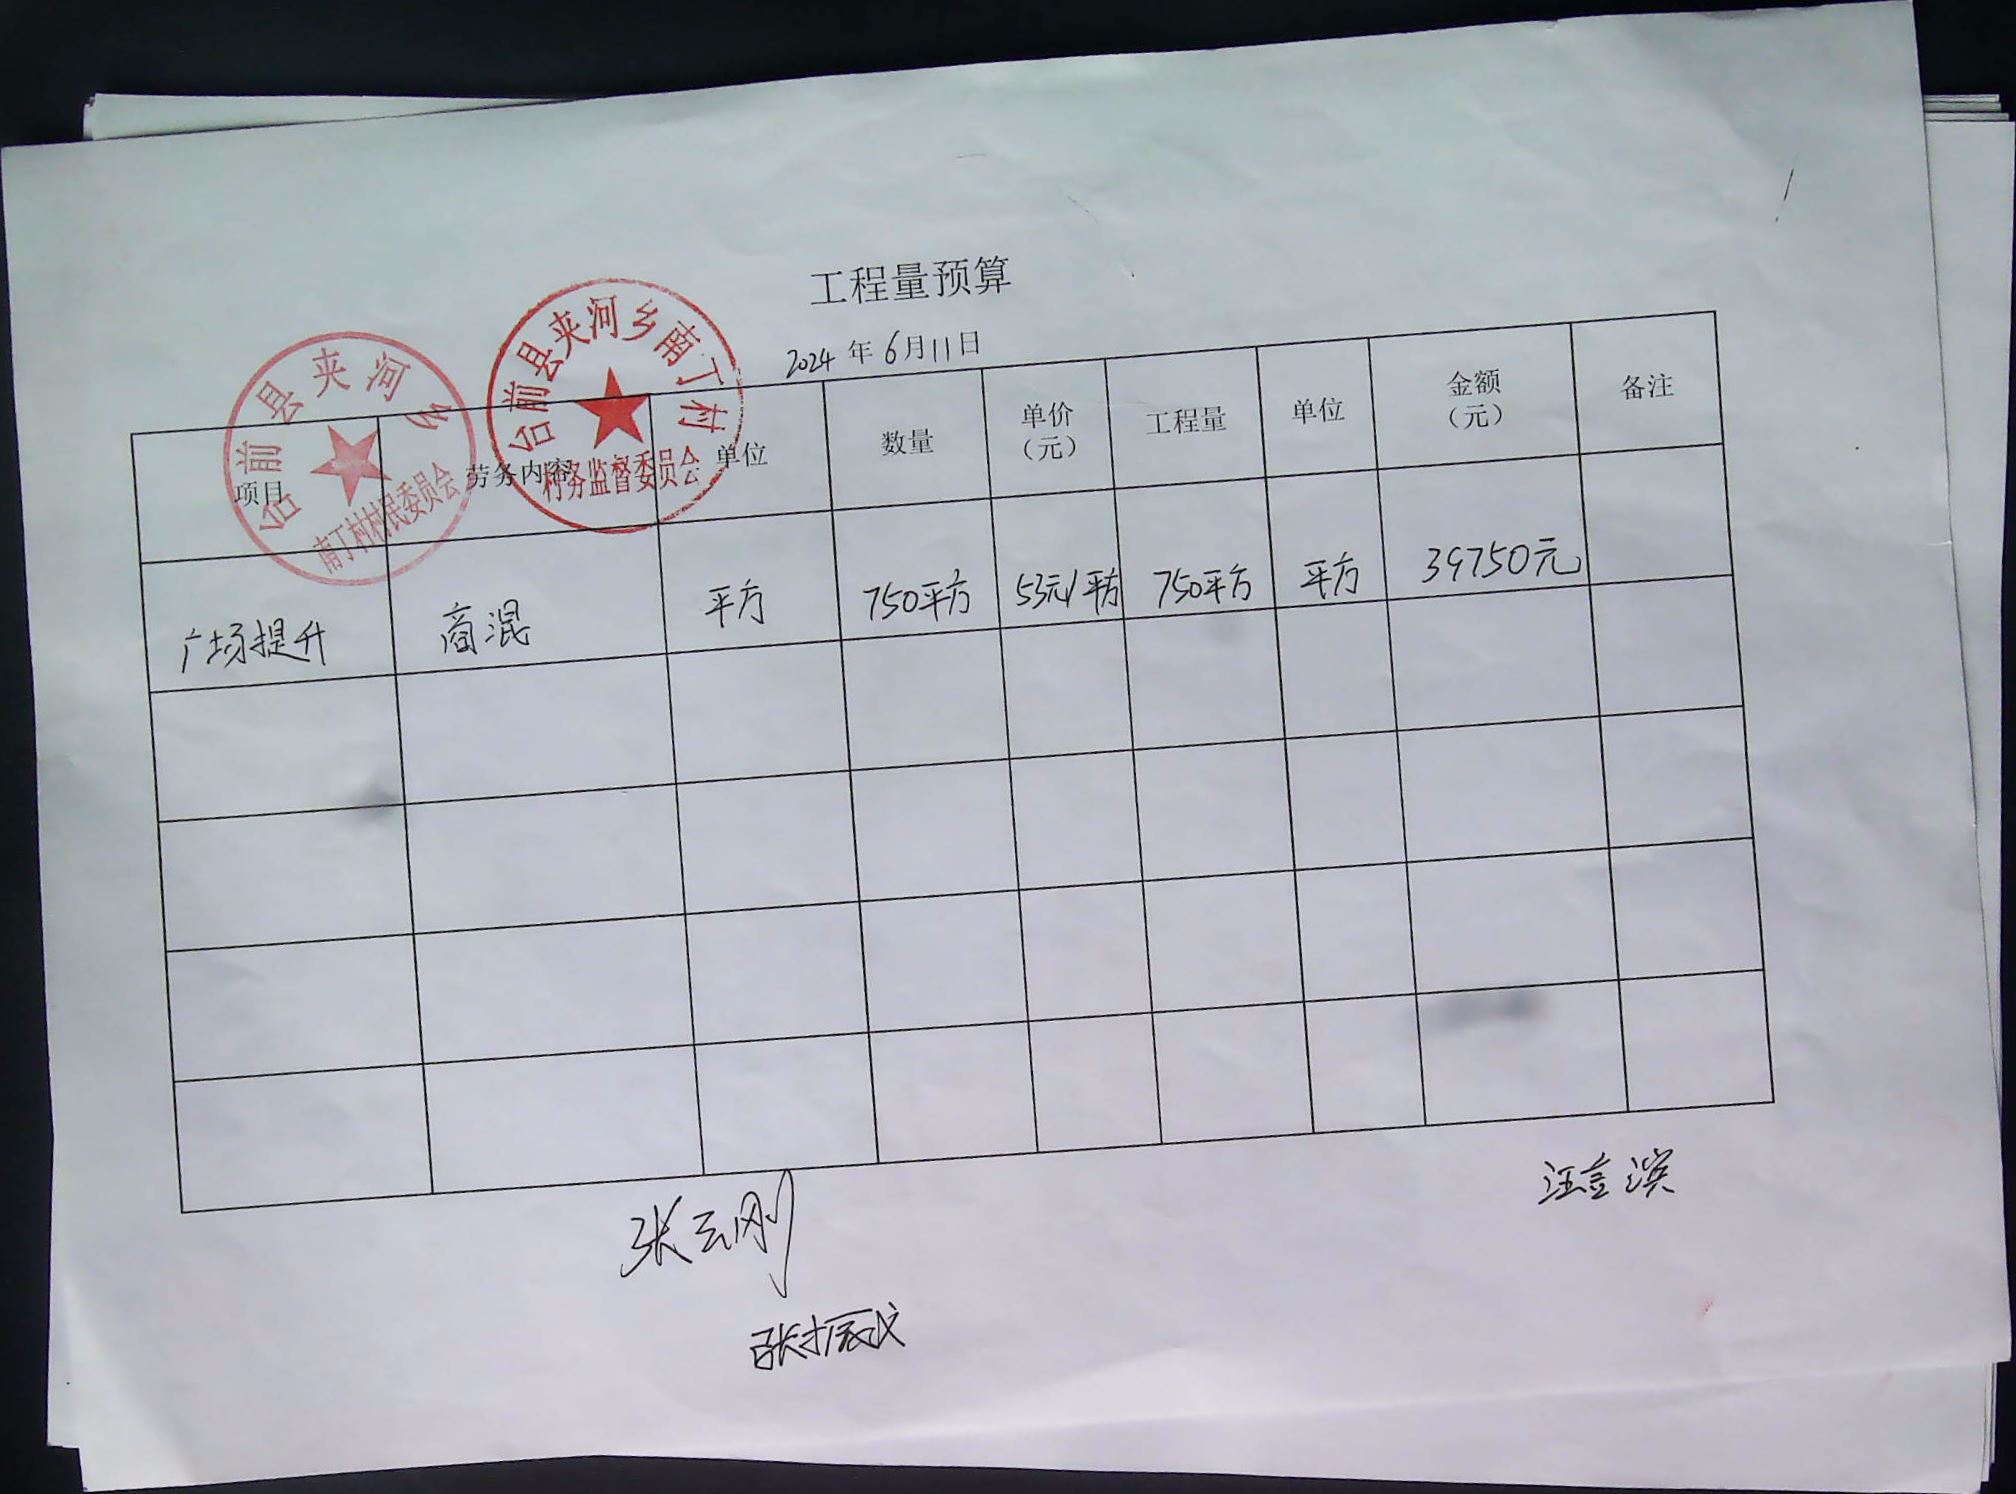 工程量预算
2024年6月11日
台前县夹河乡
南丁村村民委员会
台前县夹河乡南丁村
村务监督委员会
项目 劳务内容 单位 数量 单价（元） 工程量 单位 金额（元） 备注
广场提升 商混 平方 750平方 53元/平方 750平方 平方 39750元
张云刚
汪立滨
张振